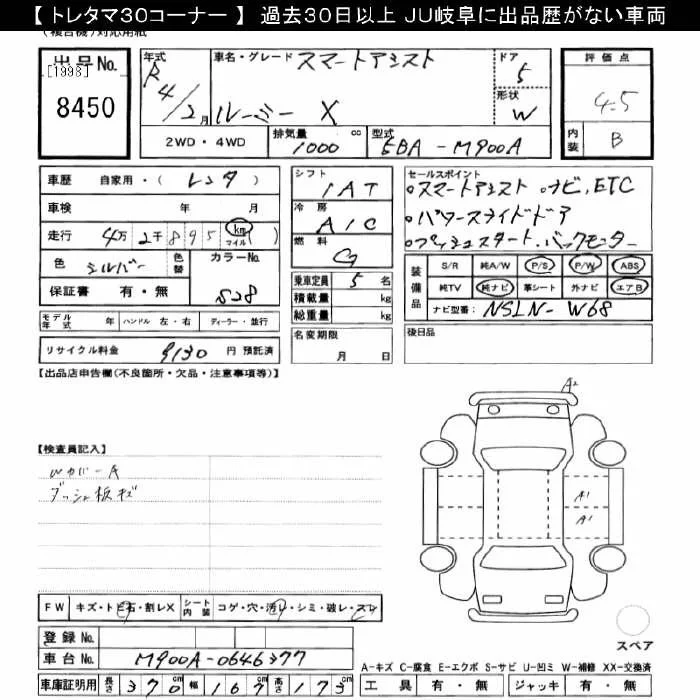 【 トレタマ30コーナー 】 過去30日以上 JU岐阜に出品歴がない車両
(複合機)対応用紙
出品No. [1998]
8450
年式 R4/2月
車名・グレード スマートアシスト
ルーミー X
ドア 5
形状 W
評価点 4.5
内装 B
2WD・4WD
排気量 1000 cc
型式 5BA-M900A
車歴 自家用・( レンタ )
車検 年 月
走行 4万2千895 (km マイル)
色 シルバー 色替 カラーNo. S28
保証書 有・無
シフト IAT
冷房 A/C
燃料 G
乗車定員 5 名
積載量 kg
総重量 kg
名変期限 月 日
セールスポイント
・スマートアシスト ・ナビ,ETC
・パワースライドドア
・プッシュスタート.バックモニター
装備品 S/R 純A/W P/S P/W ABS
純TV 純ナビ 革シート 外ナビ エアB
ナビ型番: NSZN-W68
後日品
モデル年式 年 ハンドル 左・右 ディーラー・並行
リサイクル料金 9130 円 預託済
【出品店申告欄(不良箇所・欠品・注意事項等)】
【検査員記入】
Wカバー A
ダッシュ板キズ
A2
A1
A1
FW キズ・トビ石・割レX シート内装 コゲ・穴・汚レ・シミ・破レ・スレ
登録No.
車台No. M900A-0646377
車庫証明用 長さ 370 cm 幅 167 高さ 173 cm
スペア
A-キズ C-腐食 E-エクボ S-サビ U-凹ミ W-補修 XX-交換済
工具 有・無 ジャッキ 有・無